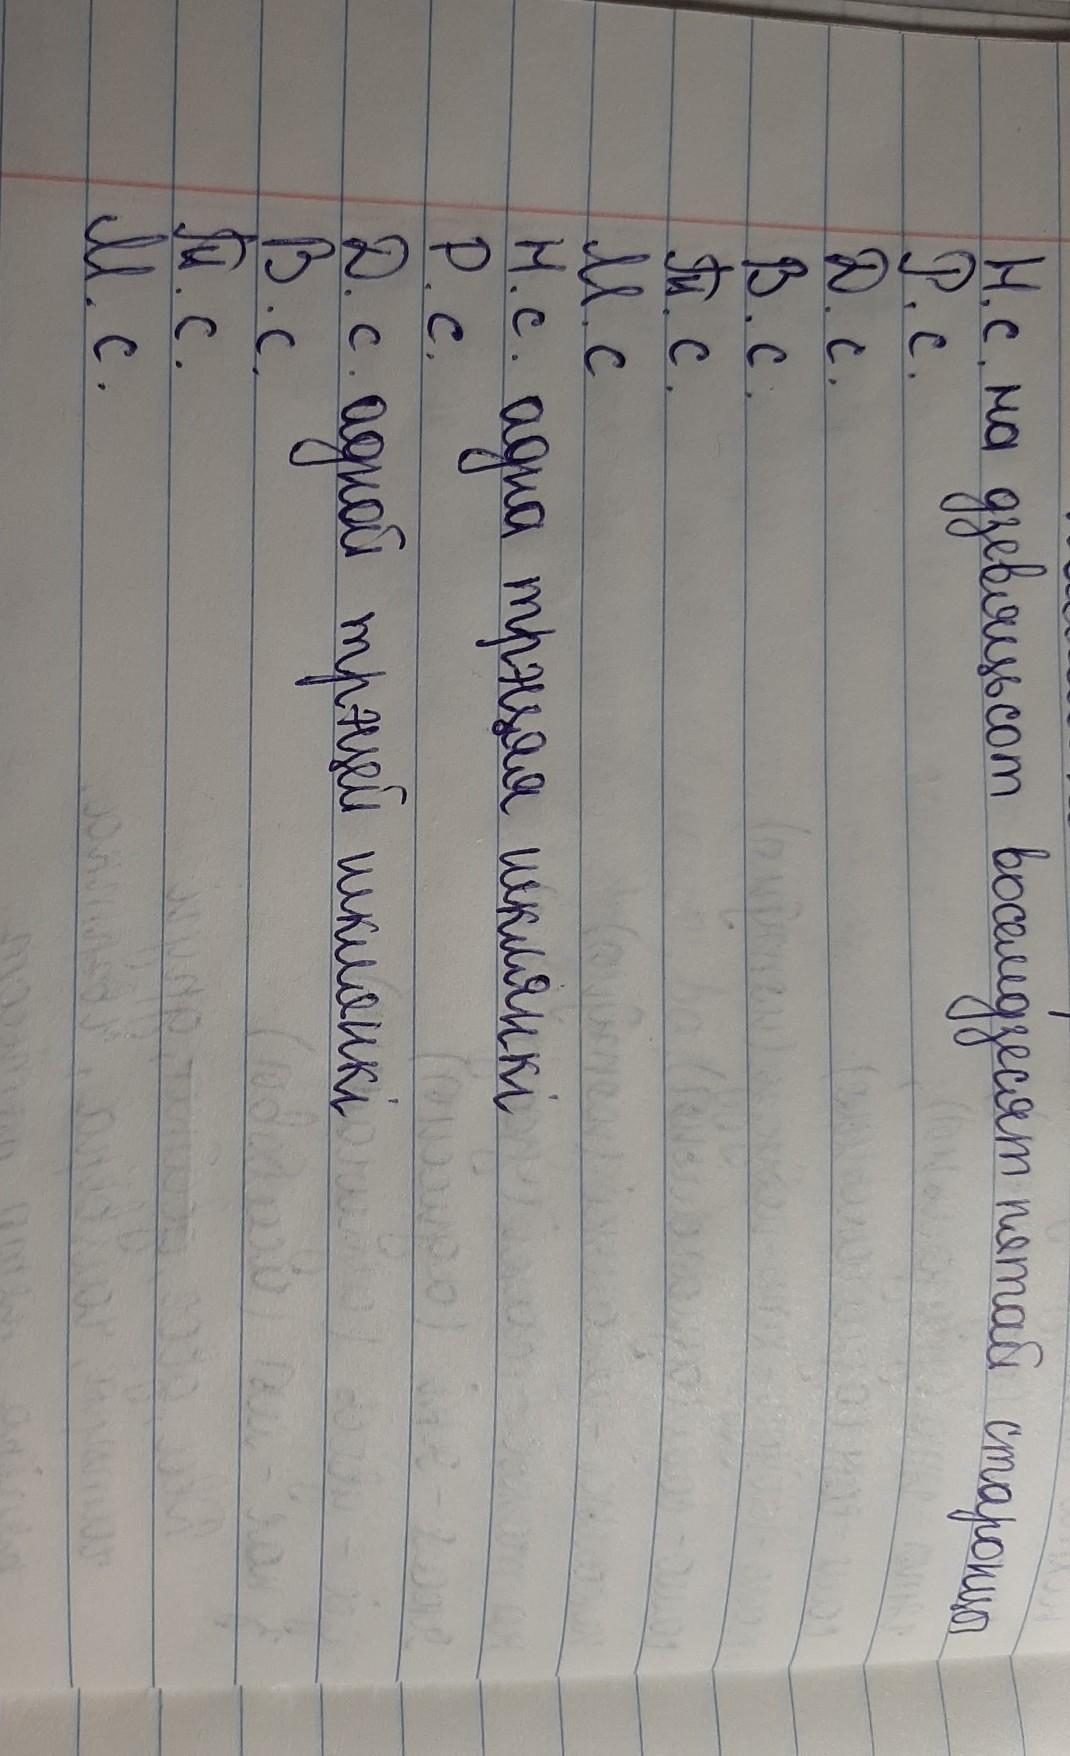 Н.с. на дзевяцьсот восемдзесят пятай старонцы
Р.с.
Д.с.
В.с.
Тв.с.
М.с
Н.с. адна трэцяя шклянкі
Р.с.
Д.с. адной трэцей шклянкі
В.с.
Тв.с.
М.с.